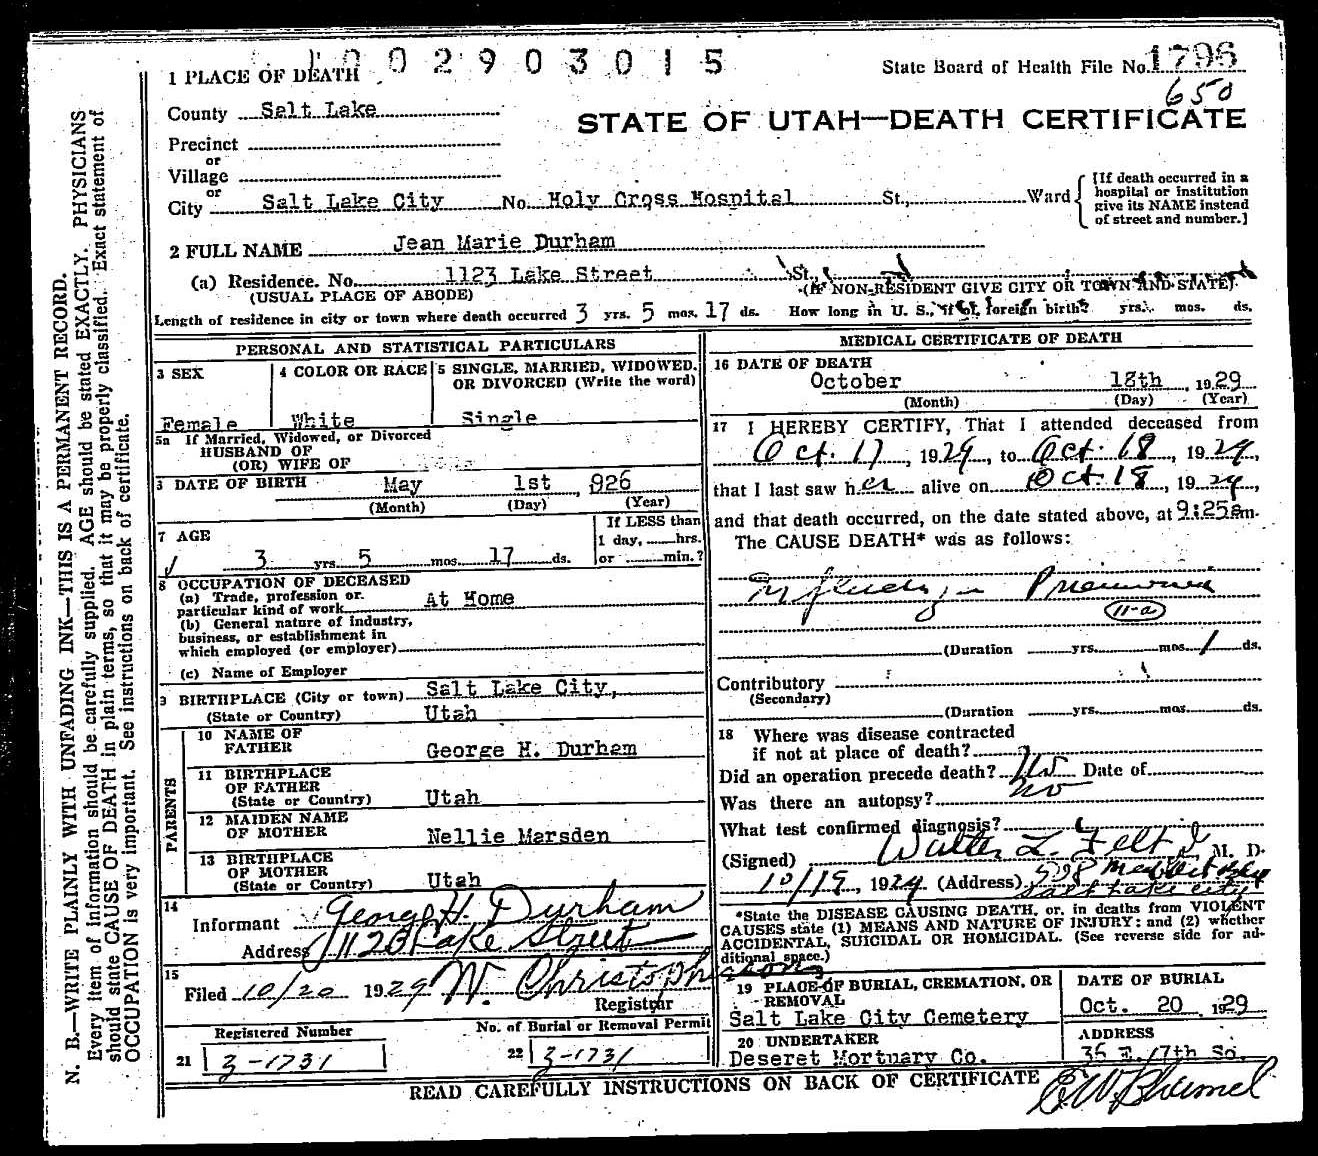 1002903015
State Board of Health File No. 1796
650
1 PLACE OF DEATH
County Salt Lake
STATE OF UTAH—DEATH CERTIFICATE
Precinct
or
Village
or
City Salt Lake City No. Holy Cross Hospital St., Ward
[If death occurred in a
hospital or institution
give its NAME instead
of street and number.]
2 FULL NAME Jean Marie Durham
(a) Residence. No. 1123 Lake Street St.,
(USUAL PLACE OF ABODE) (IF NON-RESIDENT GIVE CITY OR TOWN AND STATE)
Length of residence in city or town where death occurred 3 yrs. 5 mos. 17 ds. How long in U. S., if of foreign birth? yrs. mos. ds.
PERSONAL AND STATISTICAL PARTICULARS
3 SEX
Female
4 COLOR OR RACE
White
5 SINGLE, MARRIED, WIDOWED,
OR DIVORCED (Write the word)
Single
5a If Married, Widowed, or Divorced
HUSBAND OF
(OR) WIFE OF
DATE OF BIRTH May 1st, 926
(Month) (Day) (Year)
7 AGE
3 yrs. 5 mos. 17 ds.
If LESS than
1 day, hrs.
or min.?
8 OCCUPATION OF DECEASED
(a) Trade, profession or
particular kind of work At Home
(b) General nature of industry,
business, or establishment in
which employed (or employer)
(c) Name of Employer
9 BIRTHPLACE (City or town) Salt Lake City,
(State or Country) Utah
PARENTS
10 NAME OF
FATHER George H. Durham
11 BIRTHPLACE
OF FATHER
(State or Country) Utah
12 MAIDEN NAME
OF MOTHER Nellie Marsden
13 BIRTHPLACE
OF MOTHER
(State or Country) Utah
14
Informant George H. Durham
Address 1123 Lake Street
15
Filed 10/20 1929 W. Christopherson
Registrar
Registered Number
21 3-1731
No. of Burial or Removal Permit
22 3-1731
MEDICAL CERTIFICATE OF DEATH
16 DATE OF DEATH
October 18th, 1929
(Month) (Day) (Year)
17 I HEREBY CERTIFY, That I attended deceased from
Oct. 17, 1929, to Oct. 18, 1929,
that I last saw her alive on Oct. 18, 1929,
and that death occurred, on the date stated above, at 9:25am.
The CAUSE DEATH* was as follows:
Pneumonia
11-a
(Duration yrs. mos. 1 ds.
Contributory
(Secondary)
(Duration yrs. mos. ds.
18 Where was disease contracted
if not at place of death?
Did an operation precede death? No Date of
Was there an autopsy? no
What test confirmed diagnosis?
(Signed) Walter L. Felt M. D.
10/19, 1929 (Address)
Salt Lake City
*State the DISEASE CAUSING DEATH, or, in deaths from VIOLENT
CAUSES state (1) MEANS AND NATURE OF INJURY: and (2) whether
ACCIDENTAL, SUICIDAL OR HOMICIDAL. (See reverse side for ad-
ditional space.)
19 PLACE OF BURIAL, CREMATION, OR
REMOVAL
Salt Lake City Cemetery
DATE OF BURIAL
Oct. 20 1929
20 UNDERTAKER
Deseret Mortuary Co.
ADDRESS
36 E. 17th So.
READ CAREFULLY INSTRUCTIONS ON BACK OF CERTIFICATE
N. B.—WRITE PLAINLY WITH UNFADING INK—THIS IS A PERMANENT RECORD.
Every item of information should be carefully supplied. AGE should be stated EXACTLY. PHYSICIANS
should state CAUSE OF DEATH in plain terms, so that it may be properly classified. Exact statement of
OCCUPATION is very important. See instructions on back of certificate.